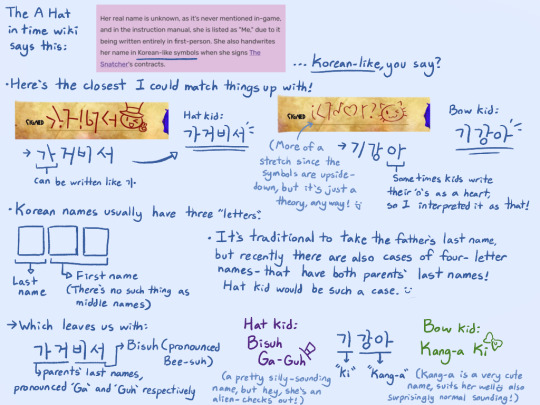 The A Hat
in time wiki
says this:
Her real name is unknown, as it's never mentioned in-game,
and in the instruction manual, she is listed as "Me," due to it
being written entirely in first-person. She also handwrites
her name in Korean-like symbols when she signs The
Snatcher's contracts.
... Korean-like, you say?
• Here's the closest I could match things up with!
SIGNED
Hat kid:
가거비서
→ 가거비서
can be written like 가.
SIGNED
Bow kid:
기강아
(More of a
stretch since the
symbols are upside-
down, but it's just a
theory, anyway!
→ 기강아
Sometimes kids write
their 'o's as a heart,
so I interpreted it as that!
• Korean names usually have three "letters".
Last
name
First name
(There's no such thing as
middle names)
• It's traditional to take the father's last name,
but recently there are also cases of four-letter
names- that have both parents' last names!
Hat kid would be such a case.
→ Which leaves us with:
가거비서
Bisuh (pronounced
Bee-suh)
parents' last names,
pronounced "Ga" and "Guh" respectively
Hat kid:
Bisuh
Ga-Guh
(a pretty silly-sounding
name, but hey, she's an
alien-checks out!)
기 강아
"ki" "Kang-a"
Bow kid:
Kang-a Ki
(Kang-a is a very cute
name, suits her well; also
surprisingly normal sounding!)